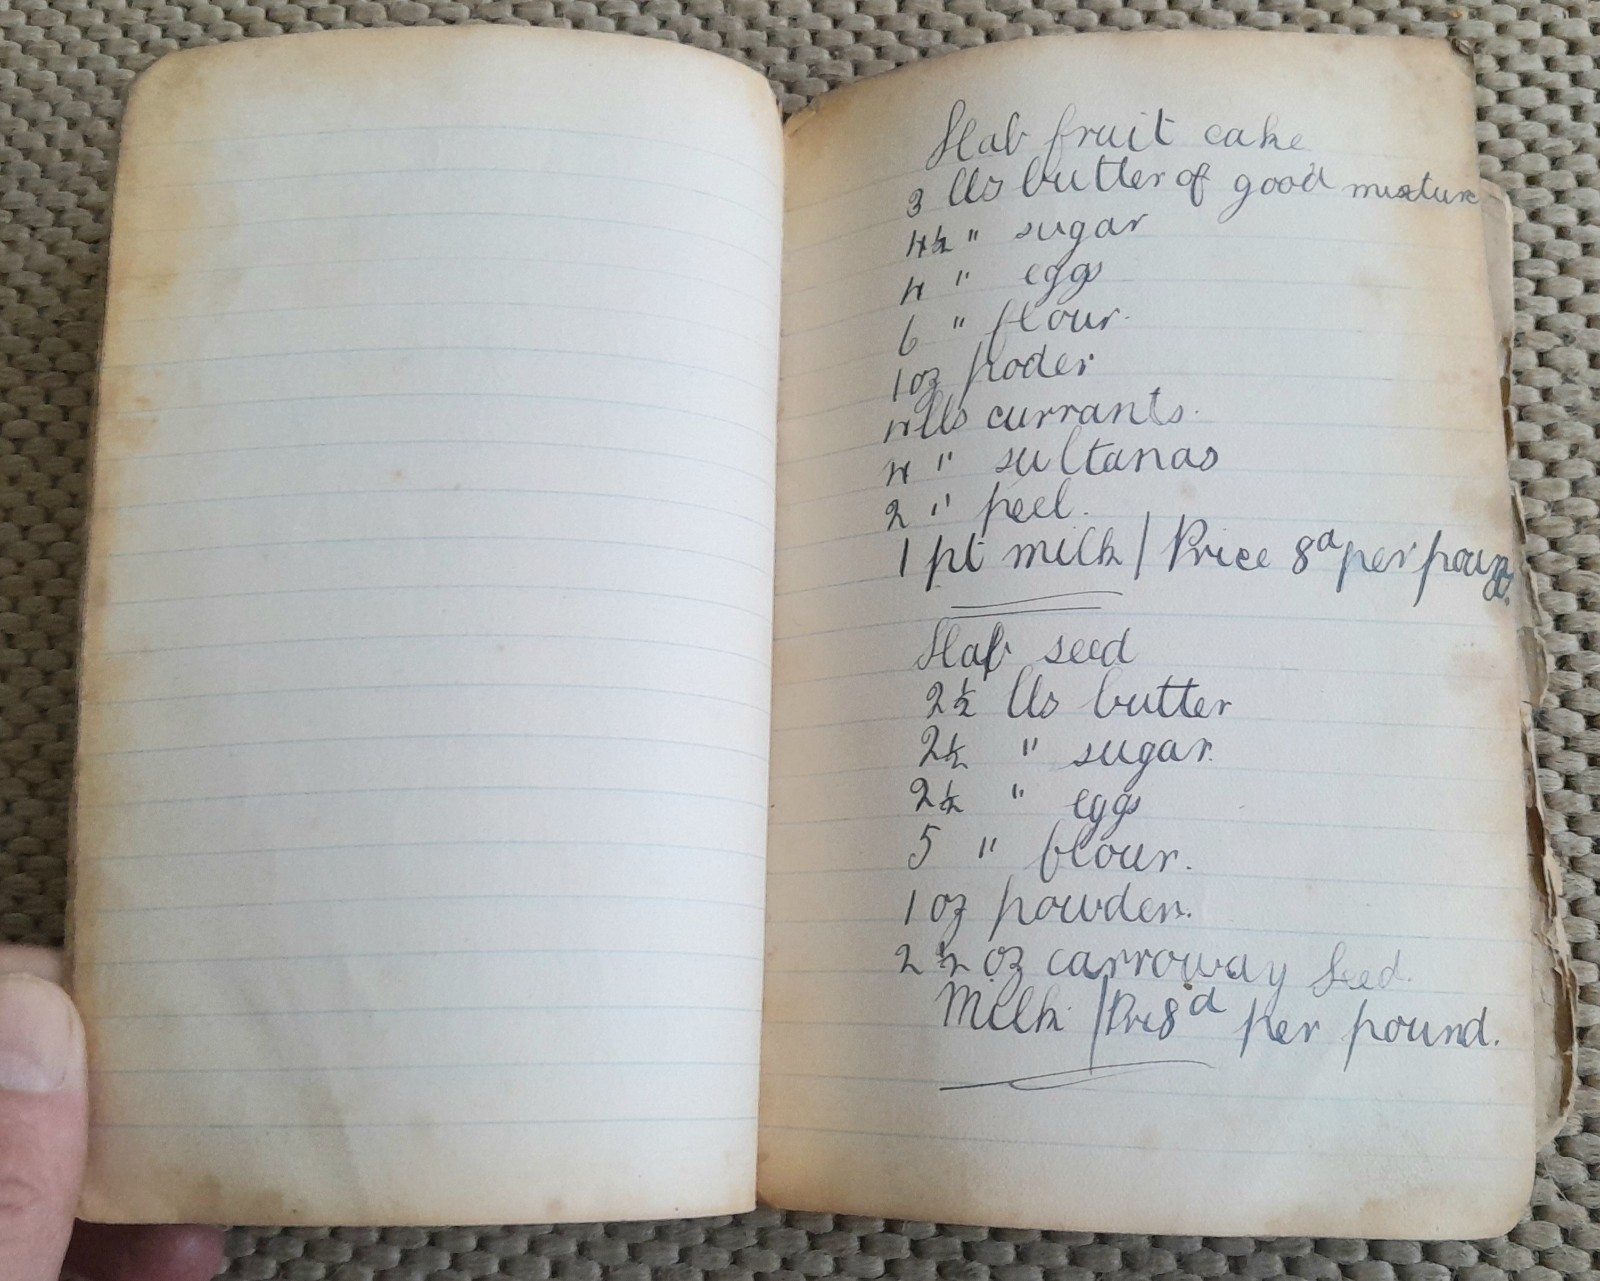 Slab fruit cake
3 lbs butter of good mixture
4½ " sugar
4 " eggs
6 " flour.
1 oz poder
4 lbs currants.
4 " sultanas
2 " peel.
1 pt milk / Price 8d per pound.
Slab seed
2½ lbs butter
2½ " sugar.
2½ " eggs
5 " flour.
1 oz powder.
2 ½ oz carroway Seed.
Milk / Pre 8d per pound.